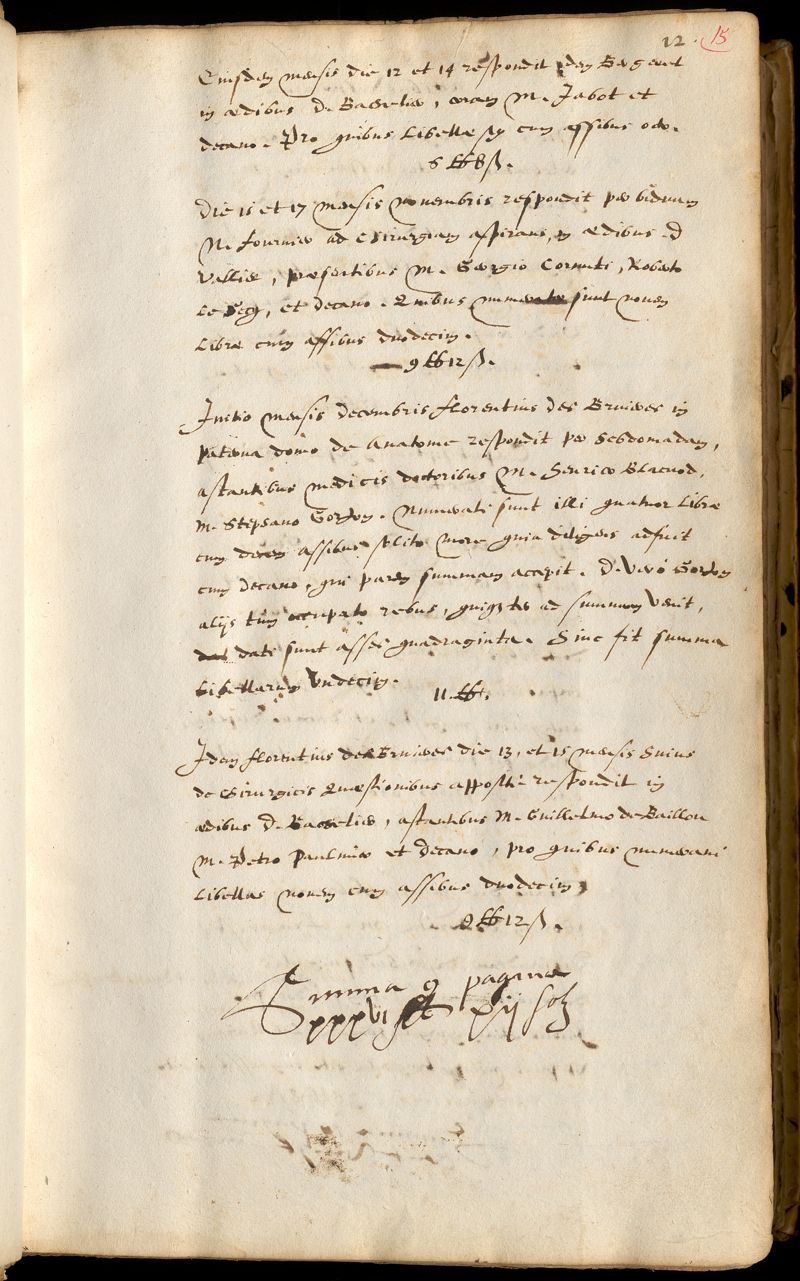 12. 15
Eiusdem mensis die 12 et 14 respondit idem
in ædibus D. coram M. Jabot et
decano. Pro quibus libellæ sex cum assibus octo.
6 ₶ 8 ß.
Die 15 et 17 mensis novembris respondit per biduum
N. fournier ad chirurgiam aspirans, in ædibus D
Valliæ, præsentibus M. Georgio Cornuti, Roberto
le Secq, et decano. Quibus numeratæ sunt novem
libræ cum assibus duodecim.
9 ₶ 12 ß.
Initio mensis decembris florentius des Bruieres in
paterna domo de Anatome respondit per hebdomadam,
astantibus medicis doctoribus M. Henrico Blacuod,
M. Stephano Gorson. Numerati sunt illi quatuor libræ
cum decem assibus solito more quia diligens adfuit
cum decano, qui parem summam accepit. D. vero Gorson
alijs tum occupato rebus, qui ter ad summum venit,
dati sunt asses quadraginta. Hinc fit summa
libellarum undecim.
11 ₶.
Idem florentius des Bruieres die 13, et 15 mensis huius
de chirurgicis quæstionibus appositè respondit in
ædibus D. astantibus M. Guillelmo de Baillou
M. Petro Paulmier et decano, pro quibus numeravi
libellas novem cum assibus duodecim,
9 ₶ 12 ß.
Summa 9 paginæ
xxxvi ₶ xij solz